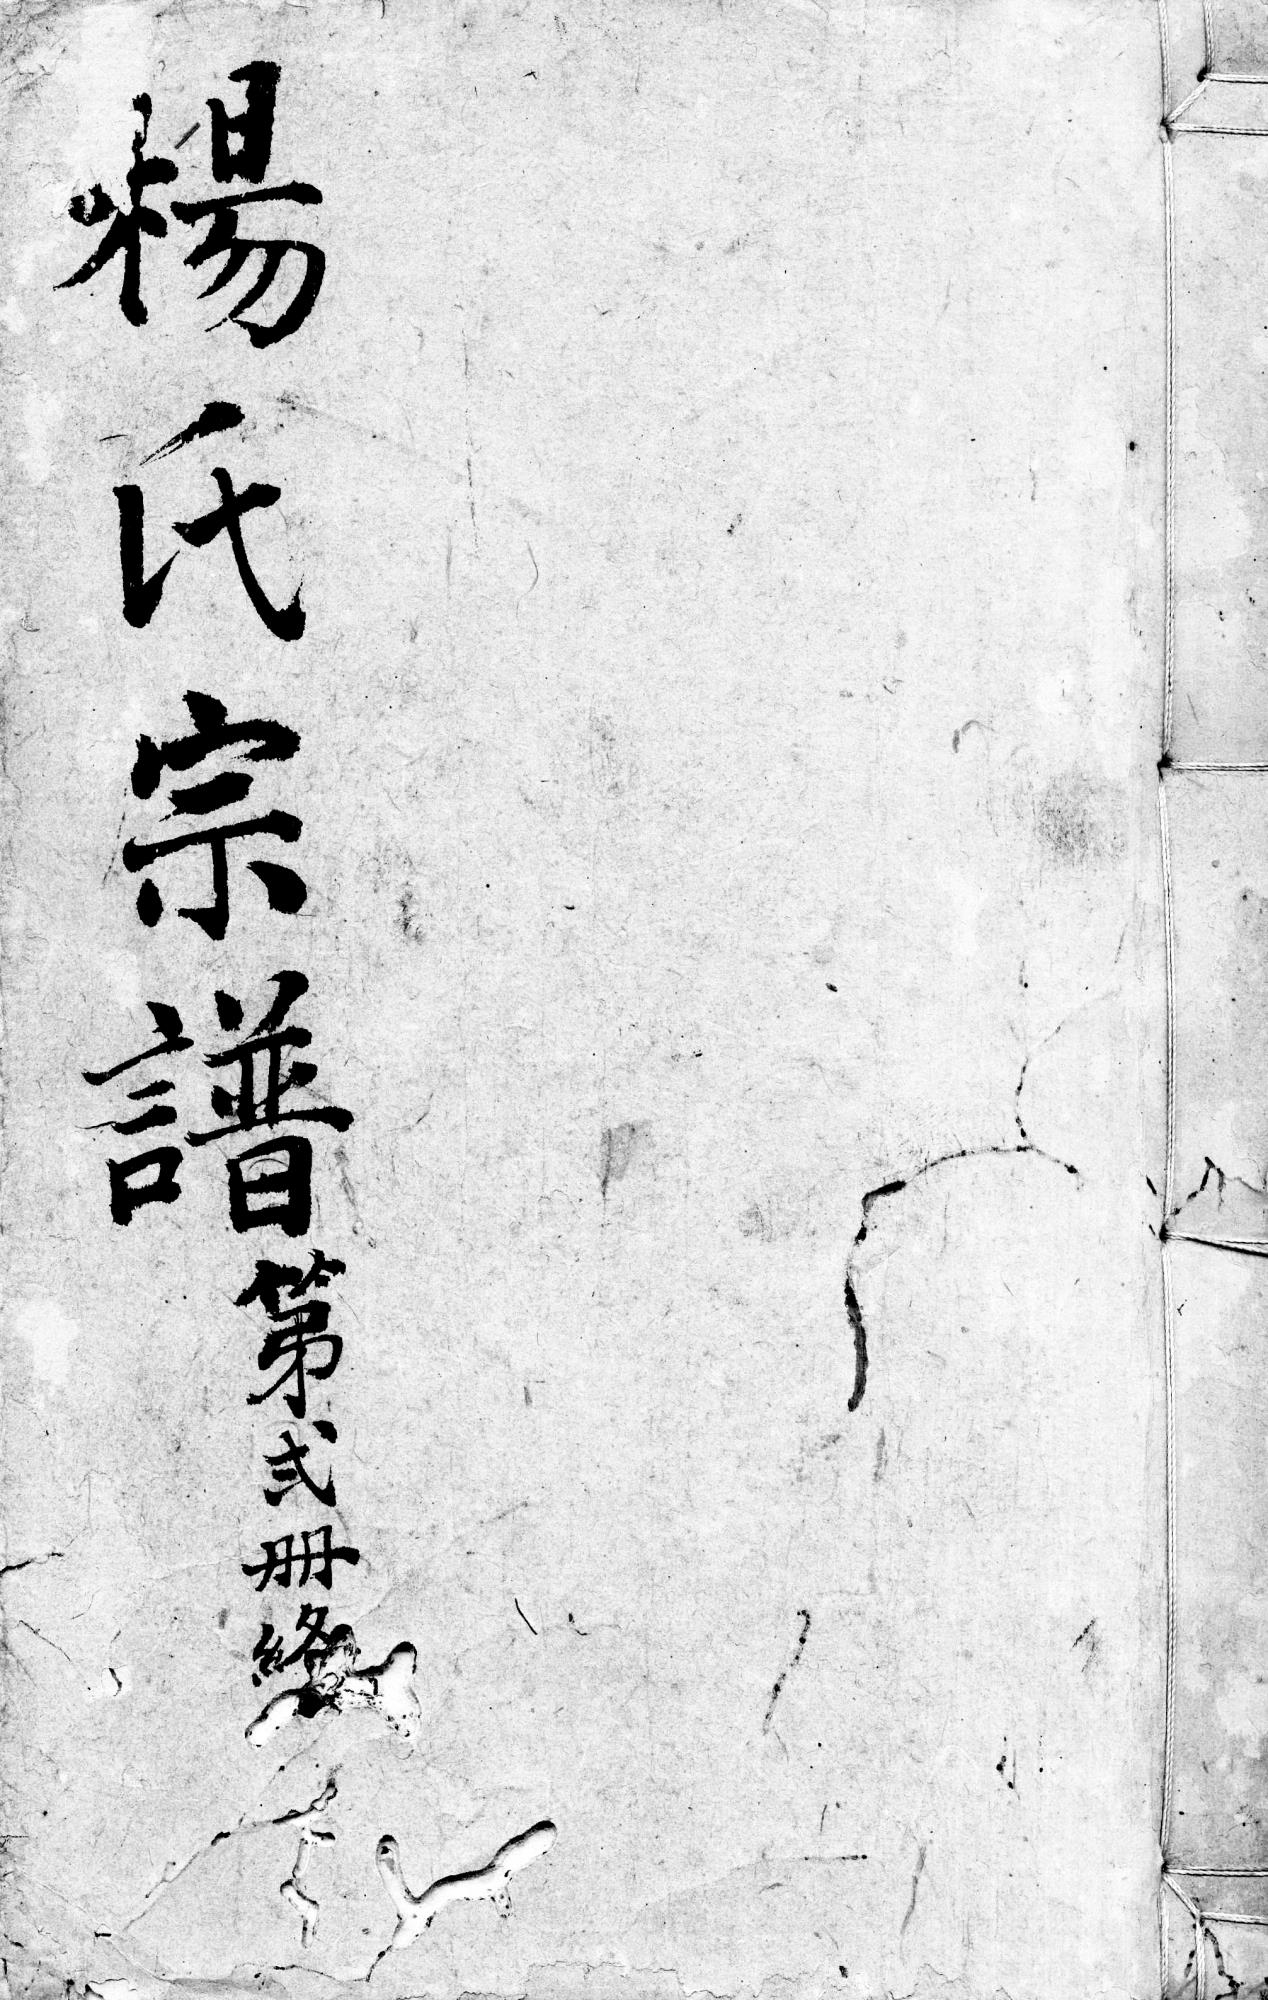 楊氏宗譜第弍冊終